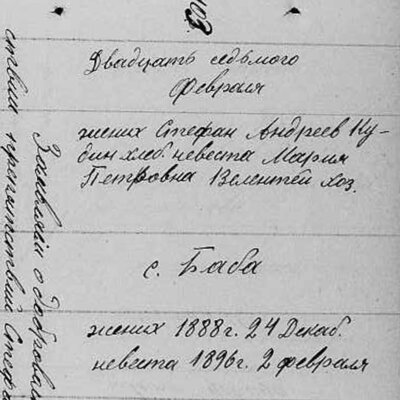 103
Двадцать седьмого
Февраля
жених Стефан Андреев Ку-
бин хлеб. невеста Мария
Петровна Велентей хоз.
с. Баба
жених 1888 г. 24 Декаб.
невеста 1896 г. 2 февраля
Заявлении о доброва
ствии препятствий Стефа